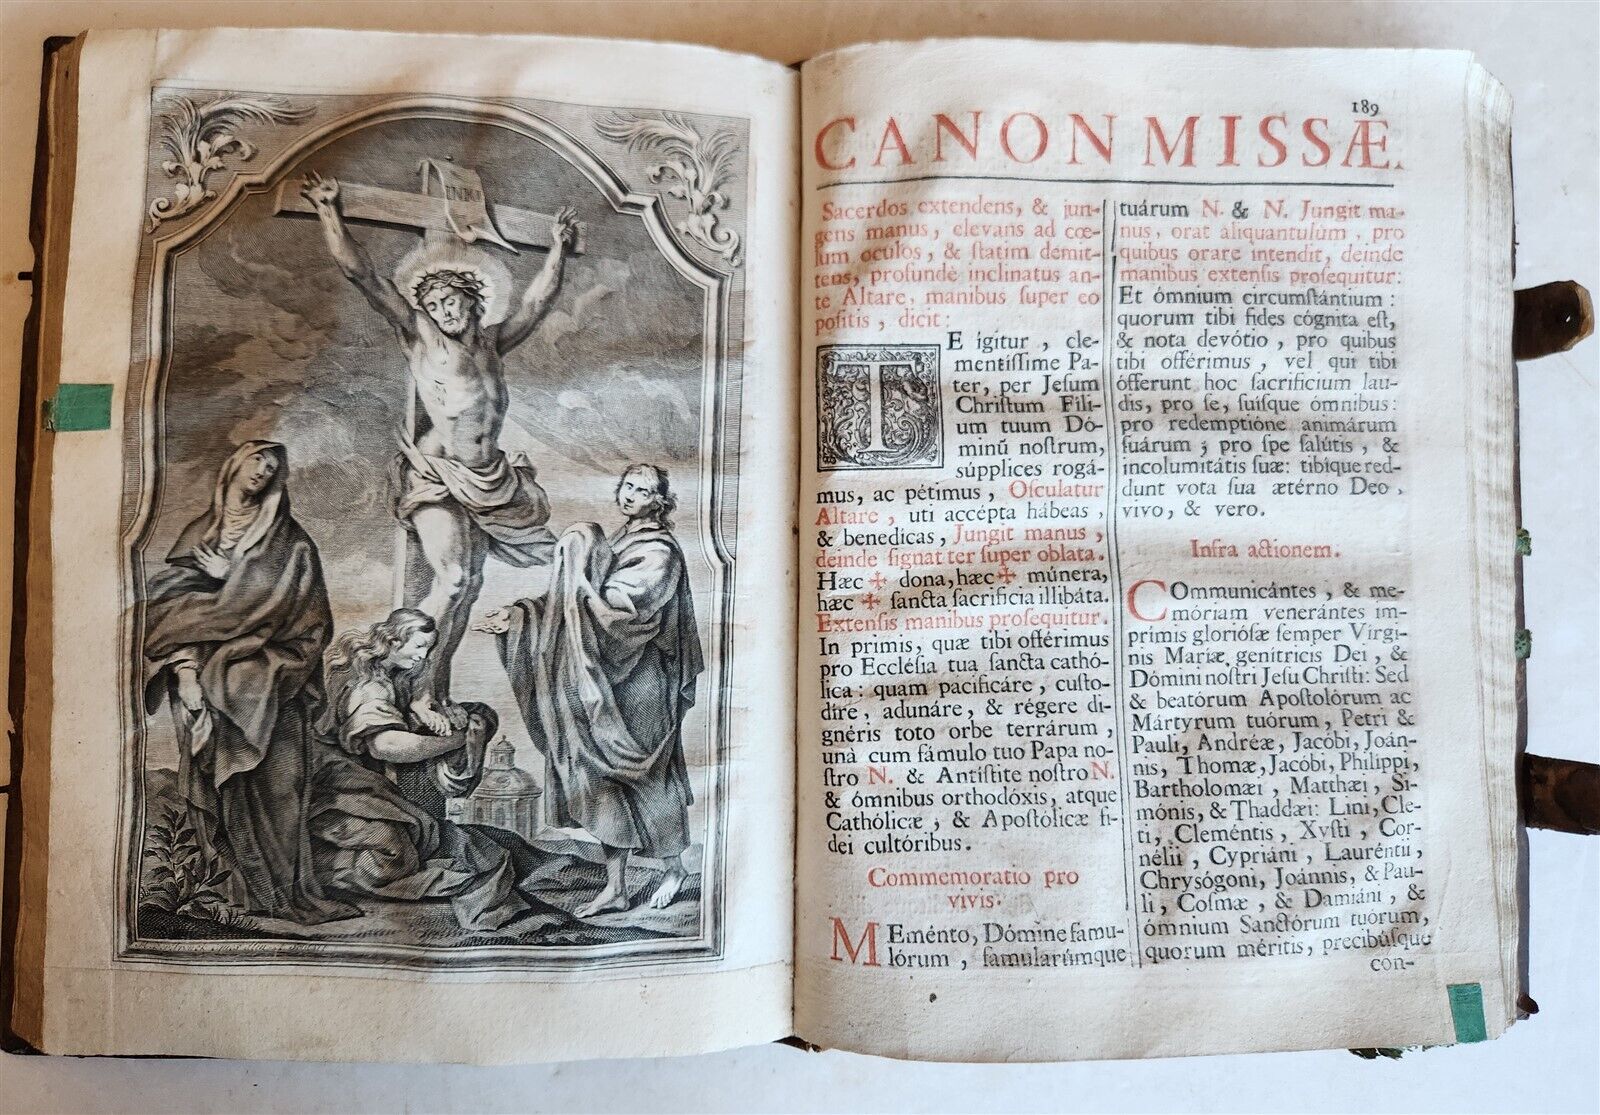 INRI
189
CANON MISSÆ.
Sacerdos extendens, & jun-
gens manus, elevans ad cœ-
lum oculos, & ſtatim demit-
tens, profundè inclinatus an-
te Altare, manibus ſuper eo
poſitis, dicit:
TE ígitur, cle-
mentiſſime Pa-
ter, per Jeſum
Chriſtum Fili-
um tuum Dó-
minũ noſtrum,
súpplices rogá-
mus, ac pétimus, Oſculatur
Altare, uti accépta hábeas,
& benedícas, Jungit manus,
deinde ſignat ter ſuper oblata.
Hæc ✠ dona, hæc ✠ múnera,
hæc ✠ ſancta ſacrificia illibáta.
Extenſis manibus proſequitur.
In primis, quæ tibi offérimus
pro Eccléſia tua ſancta cathó-
lica: quam pacificáre, cuſto-
díre, adunáre, & régere di-
gnéris toto orbe terrárum,
unà cum fámulo tuo Papa no-
ſtro N. & Antíſtite noſtro N.
& ómnibus orthodóxis, atque
Cathólicæ, & Apoſtólicæ fi-
dei cultóribus.
Commemoratio pro
vivis.
MEménto, Dómine famu-
lórum, famularúmque
tuárum N. & N. Jungit ma-
nus, orat aliquantulùm, pro
quibus orare intendit, deinde
manibus extenſis proſequitur:
Et ómnium circumſtántium:
quorum tibi fides cógnita eſt,
& nota devótio, pro quibus
tibi offérimus, vel qui tibi
ófferunt hoc ſacrificium lau-
dis, pro ſe, ſuíſque ómnibus:
pro redemptióne animárum
ſuárum; pro ſpe ſalútis, &
incolumitátis ſuæ: tibíque red-
dunt vota ſua ætérno Deo,
vivo, & vero.
Infra actionem.
COmmunicántes, & me-
móriam venerántes im-
primis glorióſæ ſemper Vírgi-
nis Maríæ, genitrícis Dei, &
Dómini noſtri Jeſu Chriſti: Sed
& beatórum Apoſtolórum ac
Mártyrum tuórum, Petri &
Pauli, Andréæ, Jacóbi, Joán-
nis, Thomæ, Jacóbi, Philíppi,
Bartholomæi, Matthæi, Si-
mónis, & Thaddæi: Lini, Cle-
ti, Cleméntis, Xyſti, Cor-
nélii, Cypriáni, Lauréntii,
Chryſógoni, Joánnis, & Pau-
li, Coſmæ, & Damiáni, &
ómnium Sanctórum tuórum,
quorum méritis, precibúſque
con-